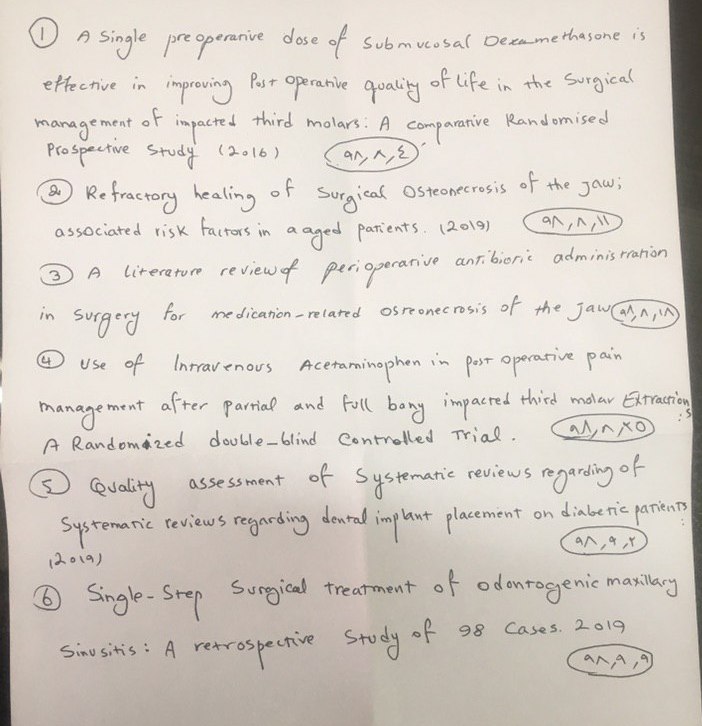 ① A Single preoperative dose of Submucosal Dexamethasone is
effective in improving Post operative quality of life in the Surgical
management of impacted third molars: A comparative Randomised
Prospective Study (2016) ۹۸,۸,٤
② Refractory healing of Surgical Osteonecrosis of the jaw;
associated risk factors in a aged patients. (2019) ۹۸,۸,۱۱
③ A literature review of perioperative antibiotic administration
in Surgery for medication-related osteonecrosis of the jaw ۹۸,۸,۱۸
④ Use of Intravenous Acetaminophen in post operative pain
management after partial and full bany impacted third molar Extraction
:s
A Randomized double-blind Controlled Trial. ۹۸,۸,۲۵
⑤ Quality assessment of Systematic reviews regarding of
Systematic reviews regarding dental implant placement on diabetic patients:
(2019) ۹۸,۹,۲
⑥ Single-Step Surgical treatment of odontogenic maxillary
Sinusitis: A retrospective Study of 98 Cases. 2019
۹۸,۹,۹